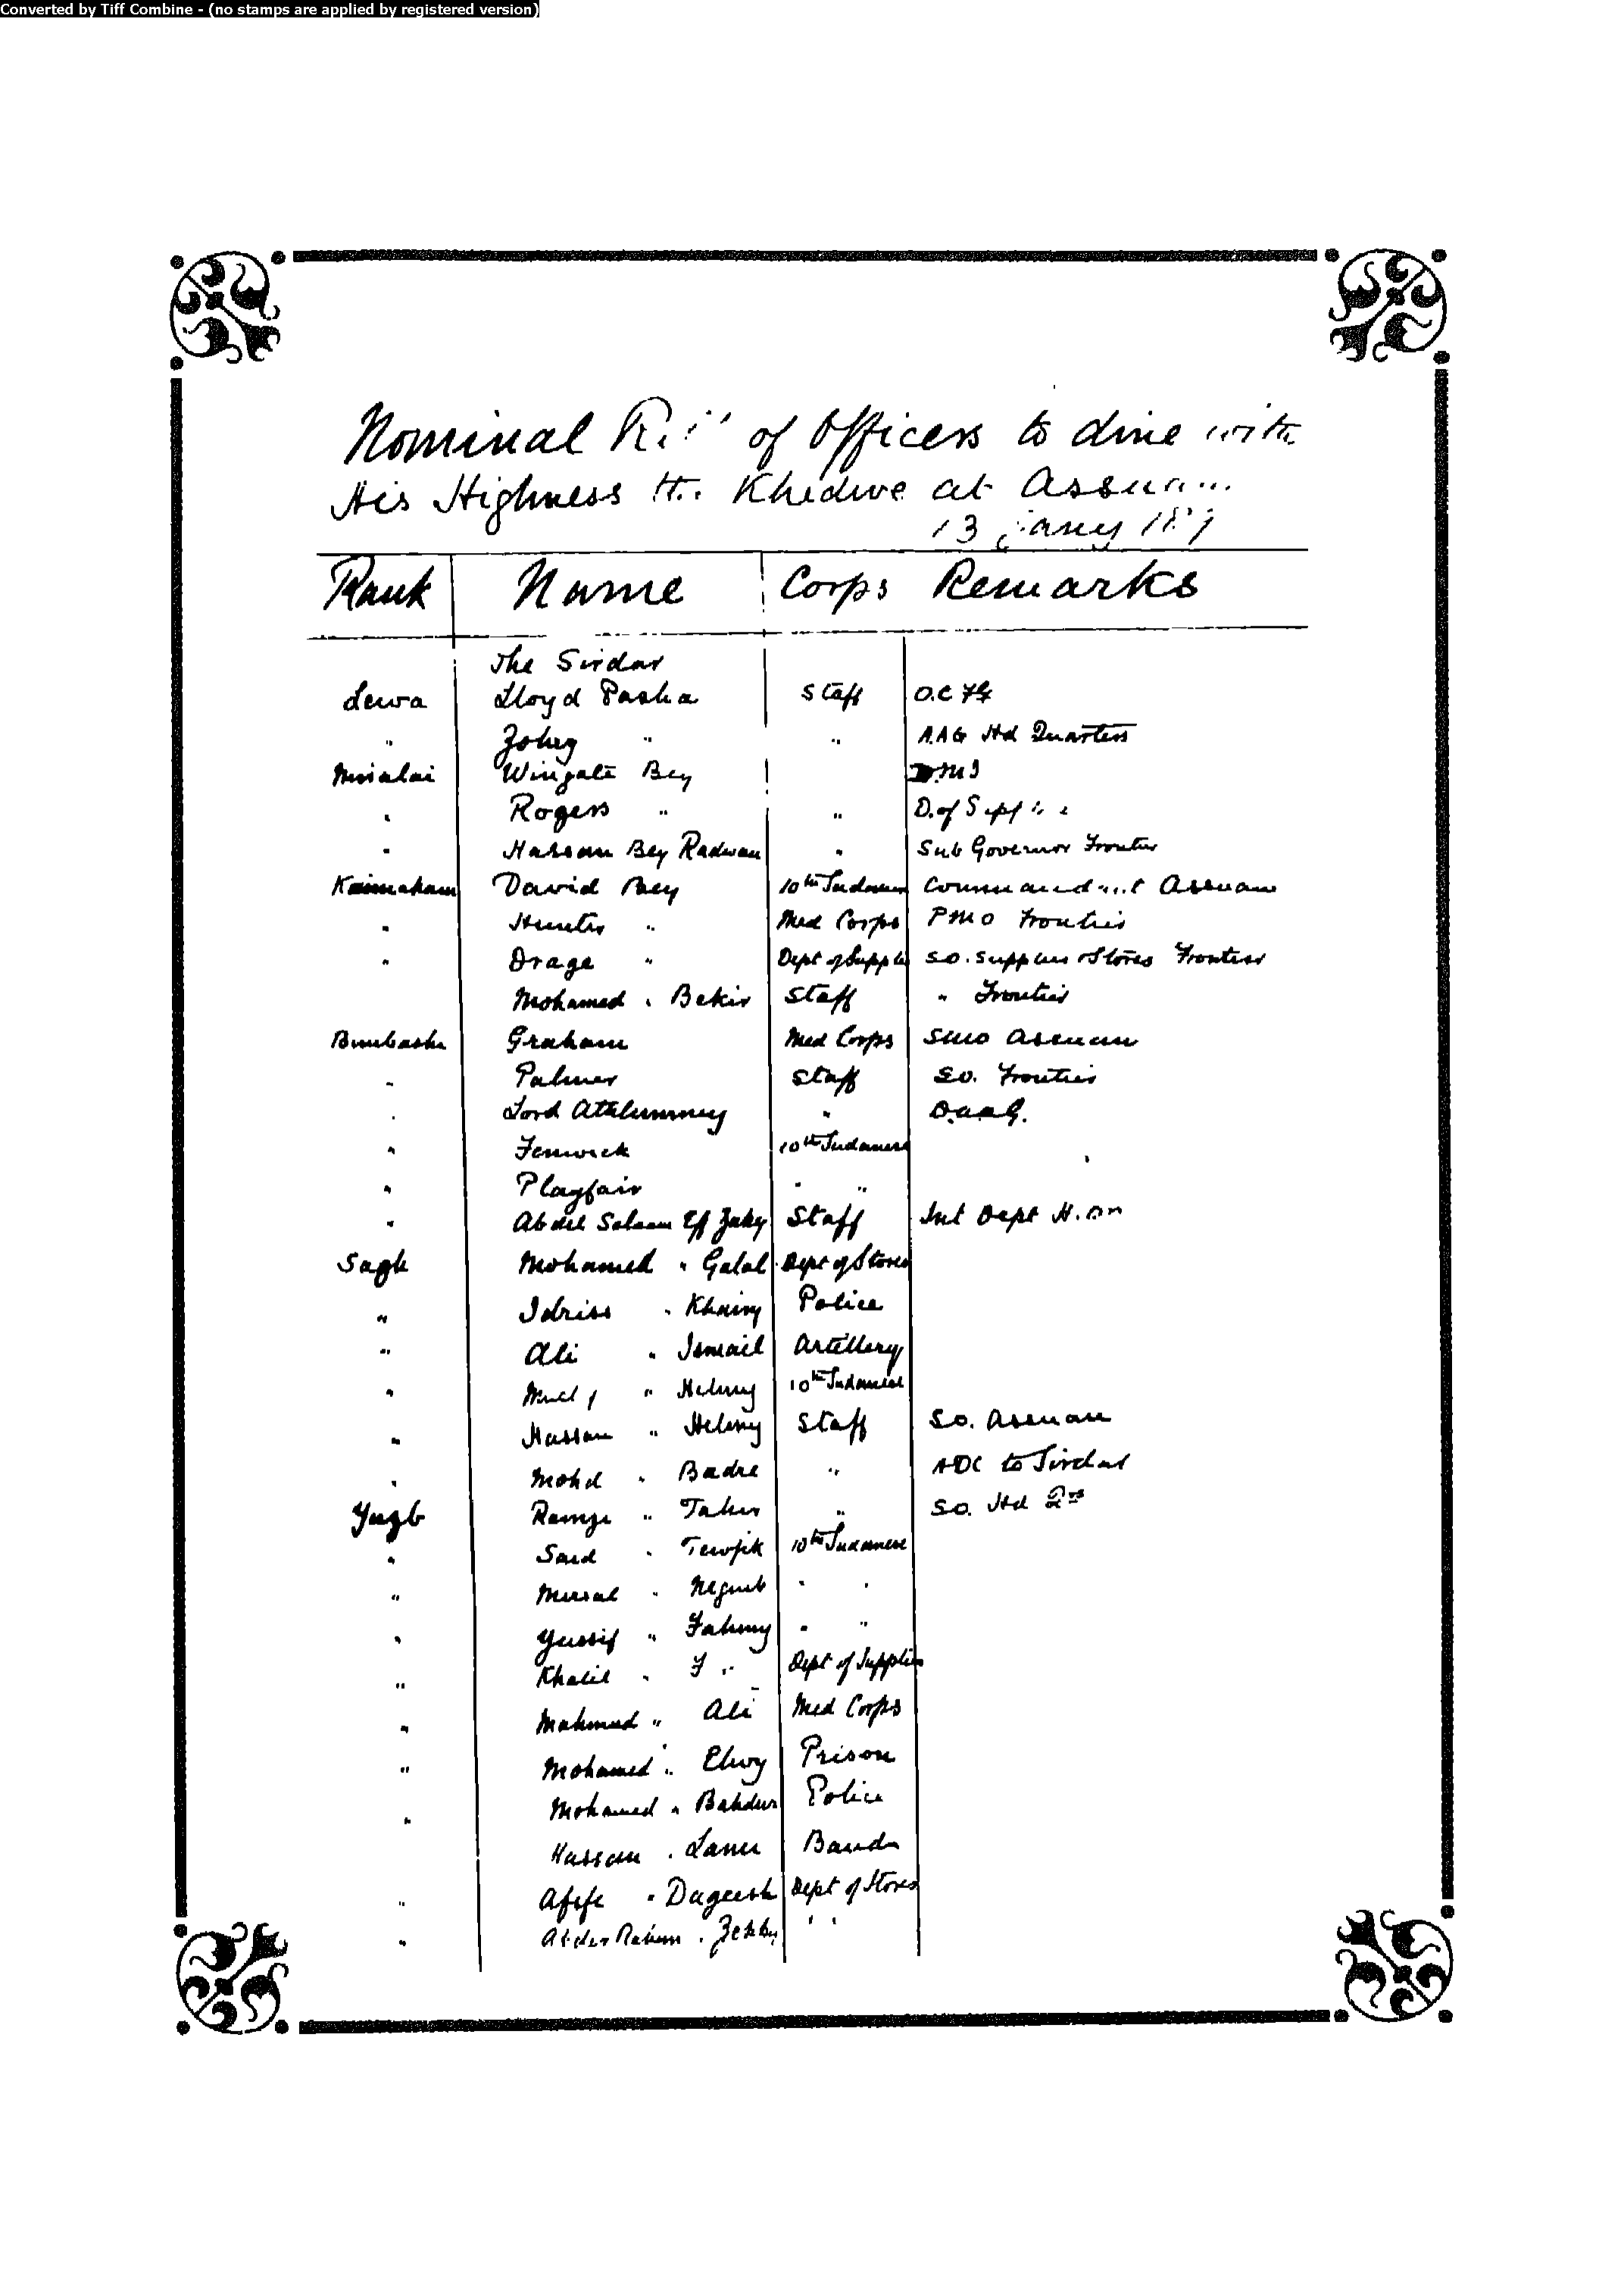 Converted by Tiff Combine - (no stamps are applied by registered version)
Nominal of Officers to dine with
His Highness the Khedive at Assuan
13 jany
Rank Name Corps Remarks
The Sirdar
Lewa Lloyd Pasha Staff O.C
" Zohry " " A.A.G Hd Quarters
Miralai Wingate Bey D.M.I
" Rogers " " D. of Supplies
" Hassan Bey Radwan " Sub Governor Frontier
Kaimakam David Bey 10th Sudanese Commandant Assuan
" Hunter " Med Corps PMO Frontier
" Drage " Dept of Supplies S.O. Supplies & Stores Frontier
Mohamed " Bekir Staff " Frontier
Bimbashi Graham Med Corps SMO Assuan
" Palmer Staff S.O. Frontier
" Lord Athlumney " D.A.A.G.
" Fenwick 10th Sudanese
" Playfair " "
" Abdel Salaam Eff Zaky Staff Int Dept
Sagh Mohamed " Galal Dept of Stores
" Idriss " Khairy Police
" Ali " Ismail Artillery
" " Helmy 10th Sudanese
" Hassan " Helmy Staff S.O. Assuan
" Mohd " Badre " ADC to Sirdar
Yuzb Ramzi " Taher " S.O. Hd Qrs
" Said " Tewfik 10th Sudanese
" Mursal " Neguib " "
" Yussif " Fahmy " "
" Khalil " F " Dept of Supplies
" Mahmud " Ali Med Corps
" Mohamed " Elwy Prison
" Mohamed " Bahdur Police
Hassan " Band
" Afife " Dageesh Dept of Stores
" Abder Rahim " " "